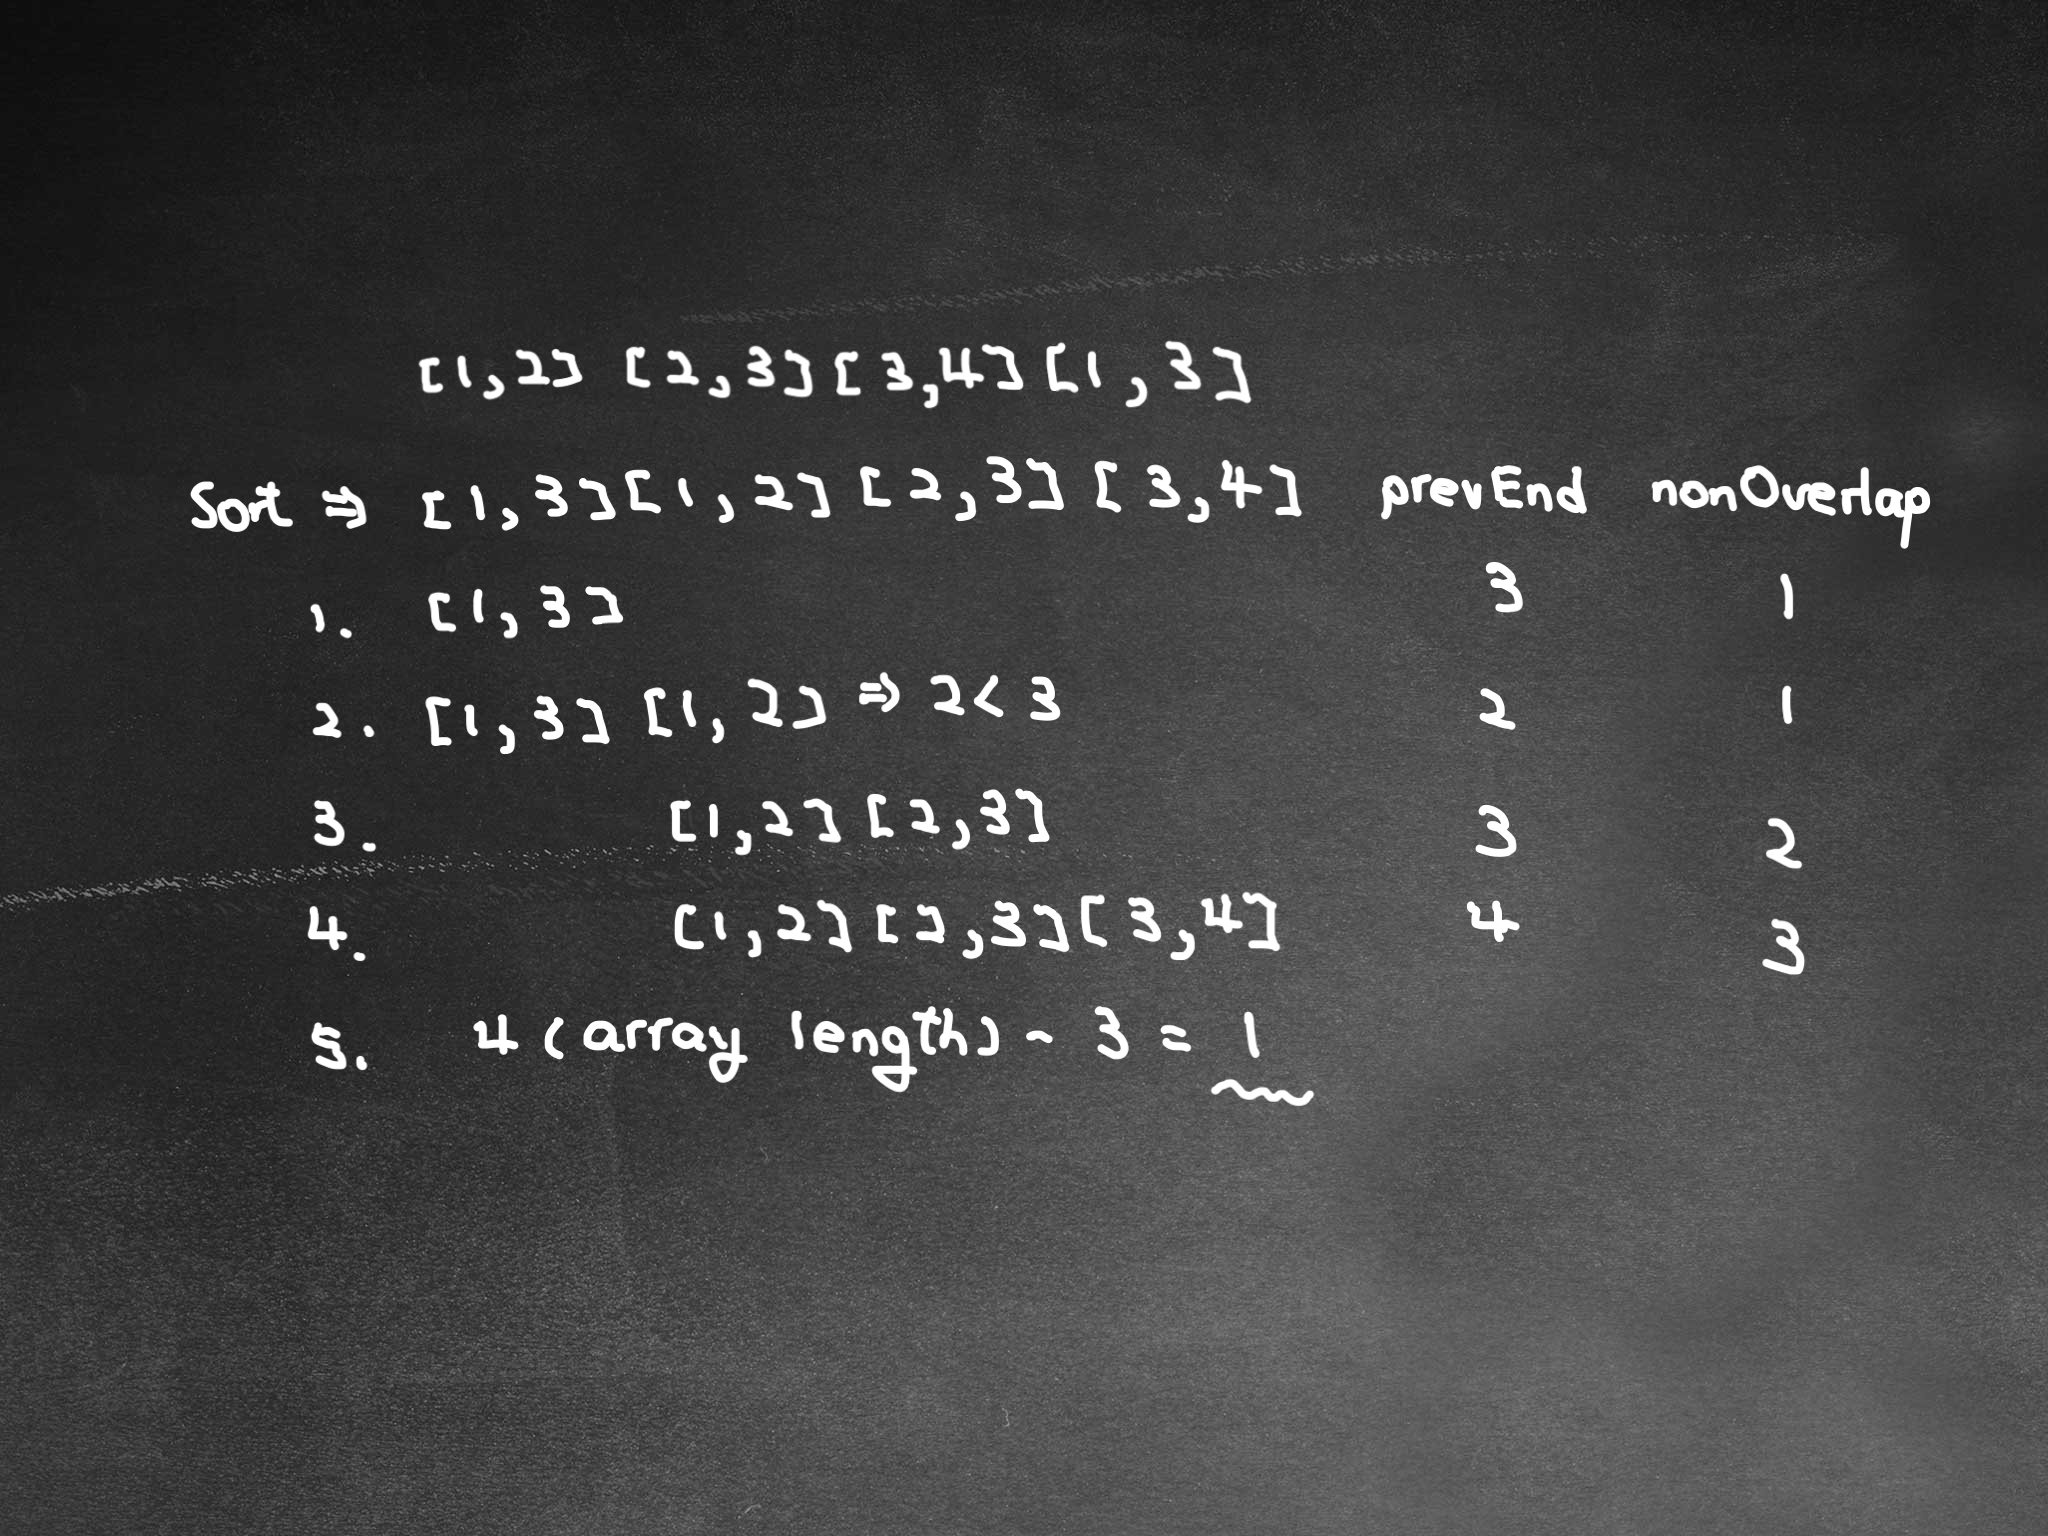 [1,2] [2,3] [3,4] [1,3]
Sort ⇒ [1,3] [1,2] [2,3] [3,4] prevEnd nonOverlap
1. [1,3] 3 1
2. [1,3] [1,2] ⇒ 2<3 2 1
3. [1,2] [2,3] 3 2
4. [1,2] [2,3] [3,4] 4 3
5. 4 (array length) - 3 = 1